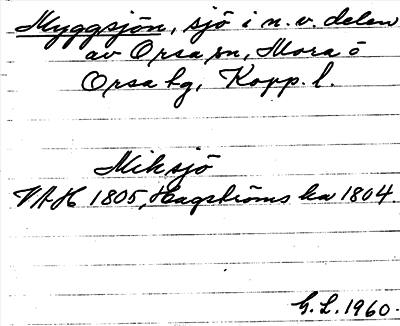 Myggsjön, sjö i n.v. delen
av Orsa sn, Mora o
Orsa tg, Kopp. l.
Miksjö
VAH 1805, Hagströms ka 1804.
G.L. 1960.